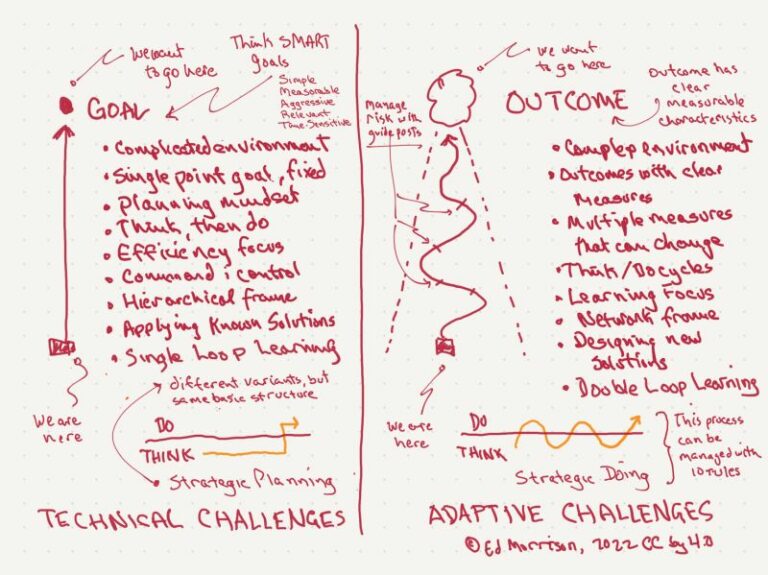 we want
to go here
Think SMART
goals
Simple
Measurable
Aggressive
Relevant
Time-Sensitive
GOAL
• Complicated environment
• Single point goal, fixed
• Planning mindset
• Think, then do
• Efficiency focus
• Command & control
• Hierarchical frame
• Applying Known Solutions
• Single Loop Learning
We are
here
different variants, but
same basic structure
DO
THINK
• Strategic Planning
TECHNICAL CHALLENGES
we want
to go here
Outcome has
clear
measurable
characteristics
manage
risk with
guide posts
OUTCOME
• Complex environment
• Outcomes with clear
measures
• Multiple measures
that can change
• Think/Do cycles
• Learning Focus
• Network frame
• Designing new
solutions
• Double Loop Learning
we are
here
DO
THINK
This
process
can be
managed with
10 rules
Strategic Doing
ADAPTIVE CHALLENGES
© Ed Morrison, 2022 CC by 4.0